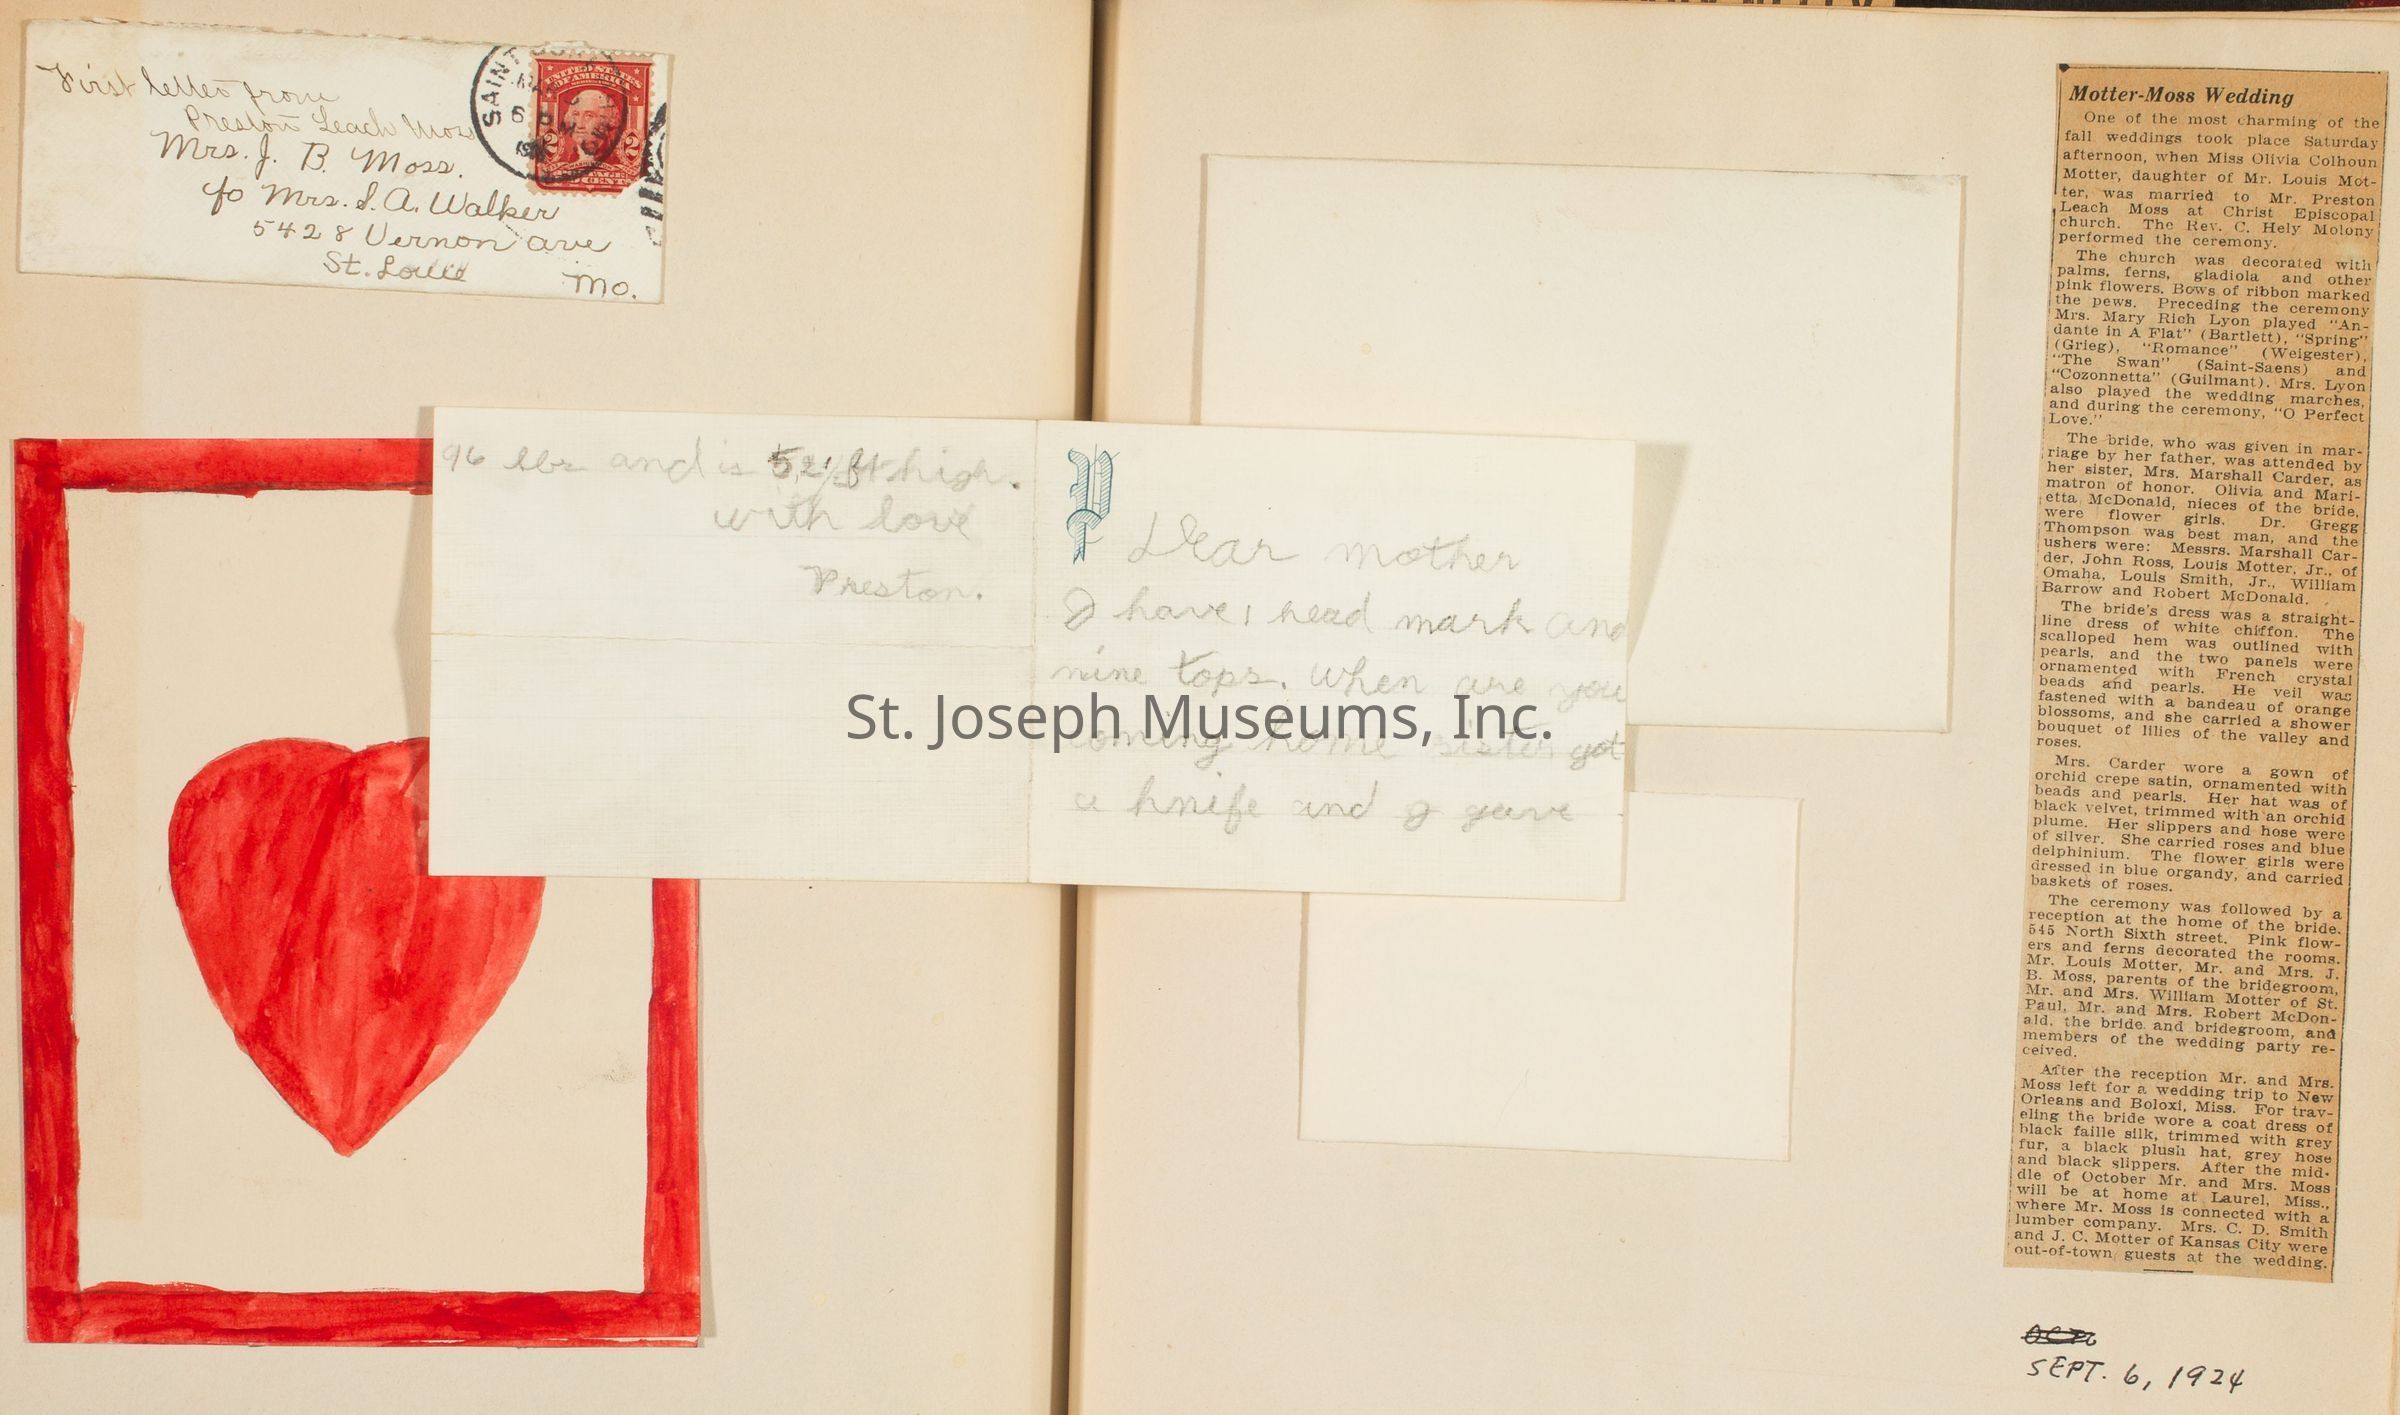 First letter from
Preston Leach Moss
Mrs. J. B. Moss.
c/o Mrs. S. A. Walker
5428 Vernon ave
St. Louis
Mo.
SAINT
6 PM
UNITED STATES
OF AMERICA
2 2
96 lbs and is 5,2½ ft high.
with love
Preston.
P
Dear mother
I have 1 head mark and
nine tops. When are you
coming home sister got
a knife and I gave
St. Joseph Museums, Inc.
Motter-Moss Wedding
One of the most charming of the
fall weddings took place Saturday
afternoon, when Miss Olivia Colhoun
Motter, daughter of Mr. Louis Mot-
ter, was married to Mr. Preston
Leach Moss at Christ Episcopal
church. The Rev. C. Hely Molony
performed the ceremony.
The church was decorated with
palms, ferns, gladiola and other
pink flowers. Bows of ribbon marked
the pews. Preceding the ceremony
Mrs. Mary Rich Lyon played "An-
dante in A Flat" (Bartlett), "Spring"
(Grieg), "Romance" (Weigester),
"The Swan" (Saint-Saens) and
"Cozonnetta" (Guilmant). Mrs. Lyon
also played the wedding marches,
and during the ceremony, "O Perfect
Love."
The bride, who was given in mar-
riage by her father, was attended by
her sister, Mrs. Marshall Carder, as
matron of honor. Olivia and Mari-
etta McDonald, nieces of the bride,
were flower girls. Dr. Gregg
Thompson was best man, and the
ushers were: Messrs. Marshall Car-
der, John Ross, Louis Motter, Jr., of
Omaha, Louis Smith, Jr., William
Barrow and Robert McDonald.
The bride's dress was a straight-
line dress of white chiffon. The
scalloped hem was outlined with
pearls, and the two panels were
ornamented with French crystal
beads and pearls. He veil was
fastened with a bandeau of orange
blossoms, and she carried a shower
bouquet of lilies of the valley and
roses.
Mrs. Carder wore a gown of
orchid crepe satin, ornamented with
beads and pearls. Her hat was of
black velvet, trimmed with an orchid
plume. Her slippers and hose were
of silver. She carried roses and blue
delphinium. The flower girls were
dressed in blue organdy, and carried
baskets of roses.
The ceremony was followed by a
reception at the home of the bride.
545 North Sixth street. Pink flow-
ers and ferns decorated the rooms.
Mr. Louis Motter, Mr. and Mrs. J.
B. Moss, parents of the bridegroom,
Mr. and Mrs. William Motter of St.
Paul, Mr. and Mrs. Robert McDon-
ald, the bride and bridegroom, and
members of the wedding party re-
ceived.
After the reception Mr. and Mrs.
Moss left for a wedding trip to New
Orleans and Boloxi, Miss. For trav-
eling the bride wore a coat dress of
black faille silk, trimmed with grey
fur, a black plush hat, grey hose
and black slippers. After the mid-
dle of October Mr. and Mrs. Moss
will be at home at Laurel, Miss.,
where Mr. Moss is connected with a
lumber company. Mrs. C. D. Smith
and J. C. Motter of Kansas City were
out-of-town guests at the wedding.
SEPT. 6, 1924